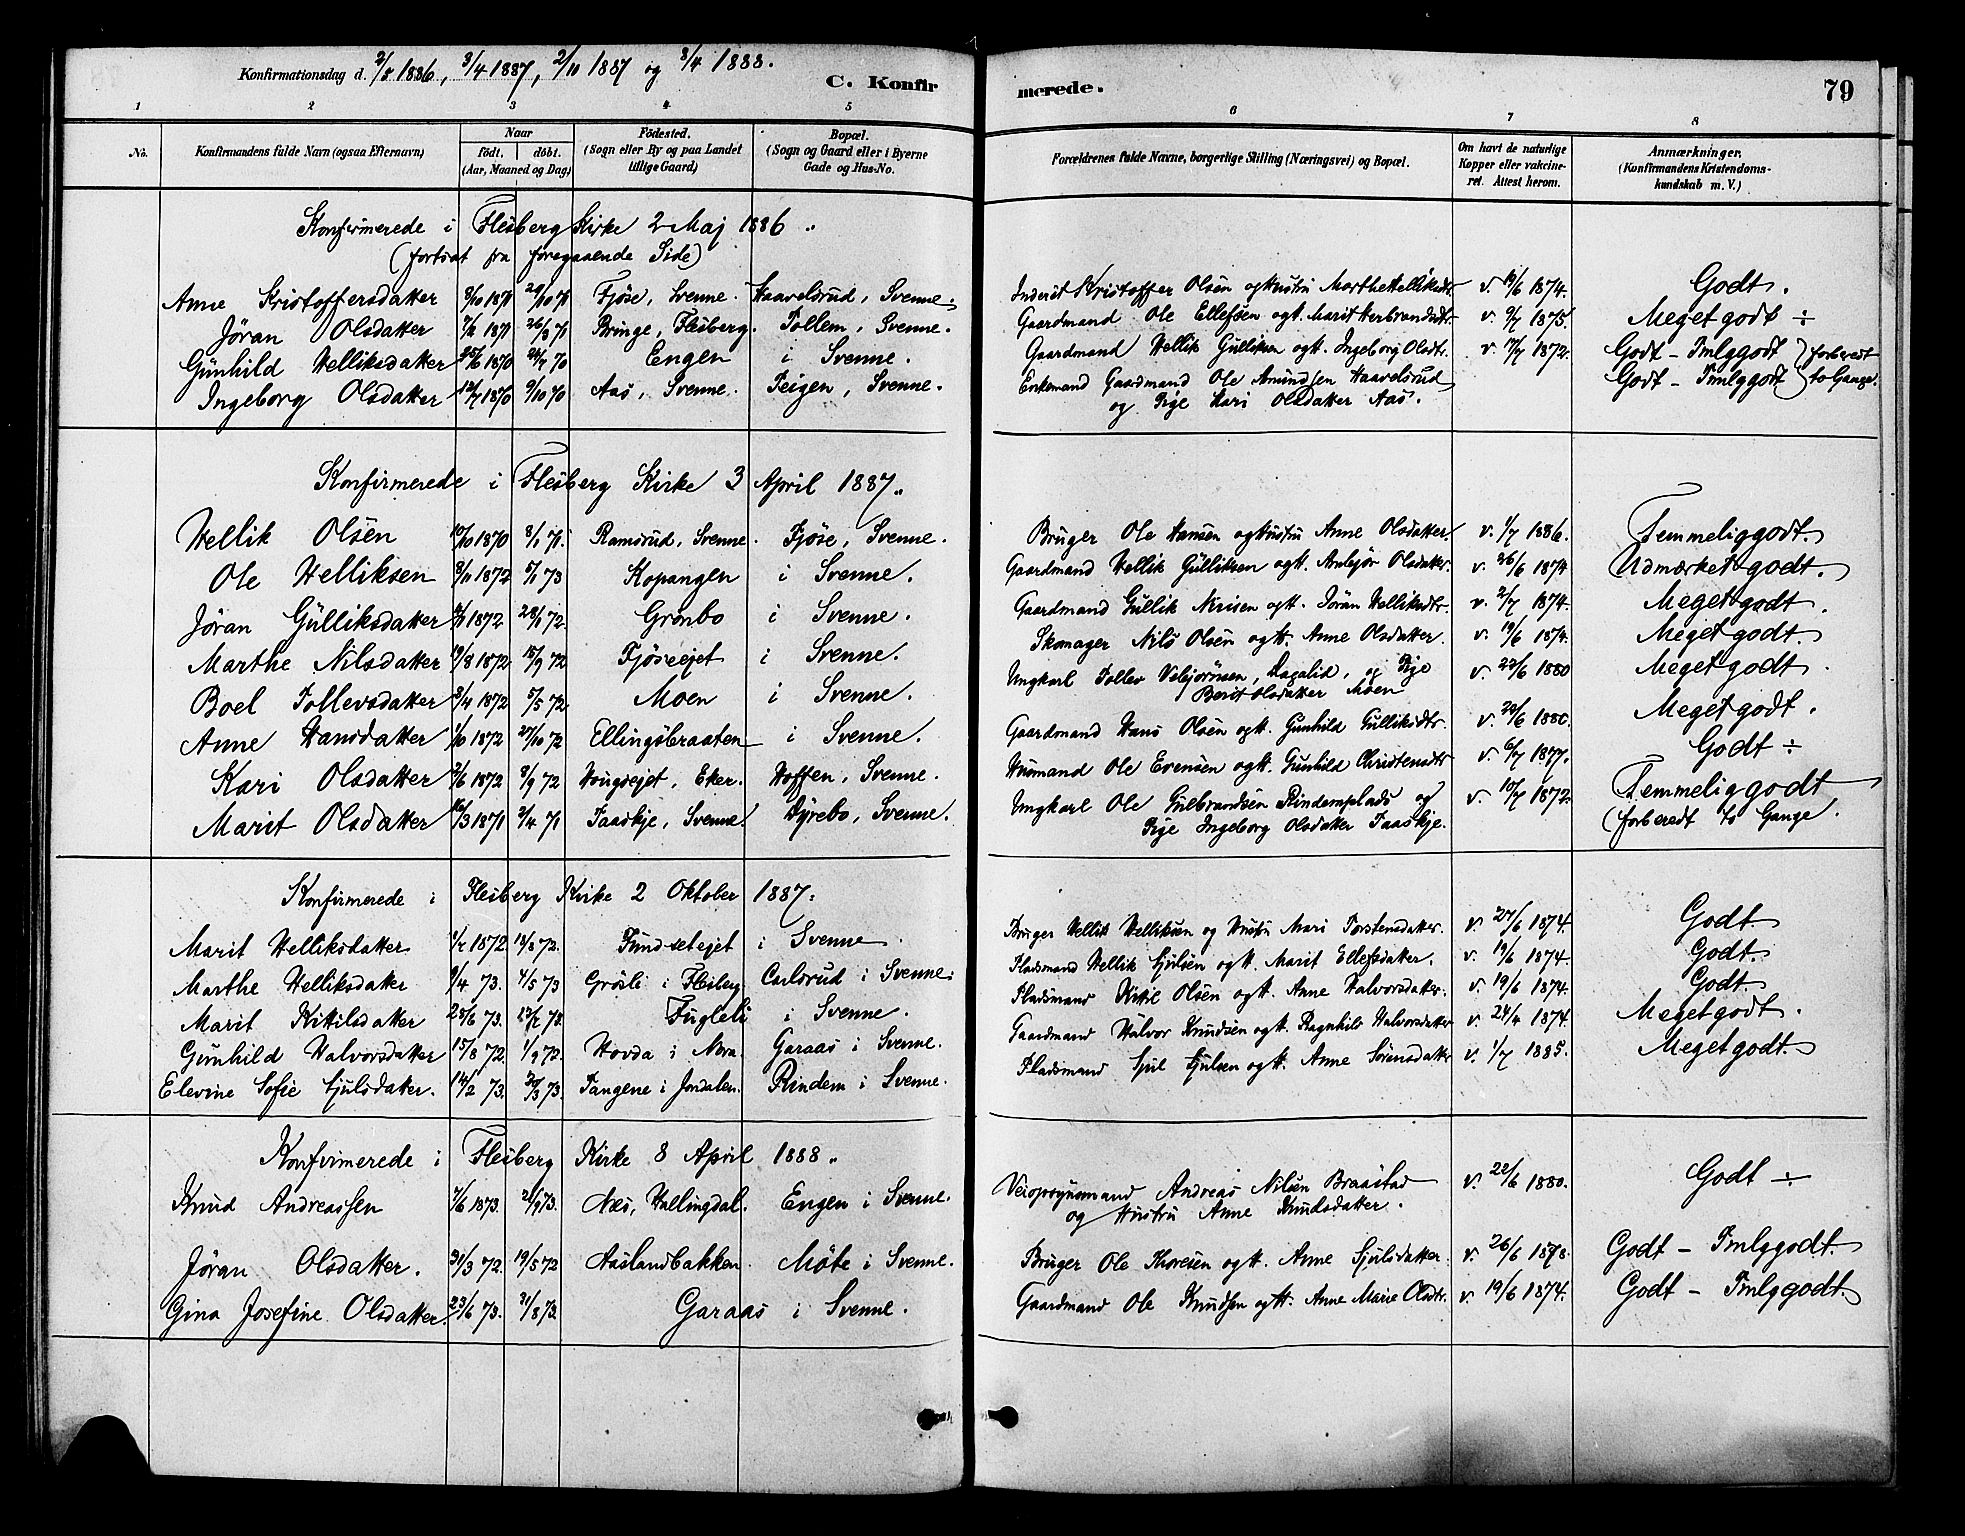 Konfirmationsdag d. 2/5 1886, 3/4 1887, 2/10 1887 og 8/4 1888.
C. Konfirmerede.
79
1 2 3 4 5 6 7 8
No.
Konfirmandens fulde Navn (ogsaa Efternavn)
Naar
født. døbt.
(Aar, Maaned og Dag)
Födested.
(Sogn eller By og paa Landet
tillige Gaard)
Bopæl.
(Sogn og Gaard eller i Byerne
Gade og Hus-No.
Forældrenes fulde Navne, borgerlige Stilling (Næringsvei) og Bopæl.
Om havt de naturlige
Kopper eller vakcine-
ret. Attest herom.
Anmærkninger.
(Konfirmandens Kristendoms-
kundskab m. V.)
Konfirmerede i Flesberg Kirke 2 Maj 1886.
(fortsat fra foregaaende Side)
Anne Kristoffersdatter 9/10 1871 29/10 71 Fjøse, Svenne. Haavelsrud, Svenne. Inderst Kristoffer Olsen og Hustru Marthe Helliksdt. v. 19/6 1874. Godt.
Jøran Olsdatter 1871 26/3 71 Bringe, Flesberg. Tollem, Svenne. Gaardmand Ole Ellefsen og H. Marit Herbrandsdt. v. 9/7 1875. Meget godt ÷
Gunhild Helliksdatter 25/6 1870 24/7 70 Engen i Svenne. Gaardmand Hellik Gulliksen og H. Ingeborg Olsdtr. v. 7/7 1872. Godt - Tmlg godt } forberedt
Ingeborg Olsdatter 12/7 1870 9/10 70 Aas, Svenne. Teigen, Svenne. Enkemand Gaardmand Ole Amundsen Haavelsrud Godt - Tmlg godt } to Gange.
og Pige Kari Olsdatter Aas.
Konfirmerede i Flesberg Kirke 3 April 1887.
Hellik Olsen 10/10 1870 8/1 71. Ramsrud, Svenne. Fjøse, Svenne. Bruger Ole Hansen og Hustru Anne Olsdatter v. 1/7 1886. Temmelig godt
Ole Helliksen 8/11 1872 5/1 73 Kopangen i Svenne. Gaardmand Hellik Gulliksen og H. Olsdatter. v. 26/6 1874 Udmærket godt.
Jøran Gulliksdatter 1872 28/1 72. Grønbo i Svenne. Gaardmand Gullik Nirisen og H. Jøran Helliksdtr. v. 2/7 1874. Meget godt.
Marthe Nilsdatter 19/8 1872 15/9 72 Fjøseejet i Svenne. Skomager Nils Olsen og H. Anne Olsdatter. v. 19/6 1874. Meget godt.
Boel Tollevsdatter 3/4 1872 5/5 72 Moen i Svenne. Ungkarl Tollev Vebjørnsen, og Pige v. 23/6 1880 Meget godt.
Berit Olsdatter Moen
Anne Hansdatter 1/10 1872 27/10 72 Ellingsbraaten i Svenne. Gaardmand Hans Olsen og H. Gunhild Gulliksdtr. v. 22/6 1880. Meget godt.
Kari Olsdatter 2/6 1872 8/9 72 Hougsejet, Eker. Hoffen, Svenne. Husmand Ole Evensen og H. Gunhild Christensdtr v. 6/7 1877. Godt ÷
Marit Olsdatter 16/3 1871 2/4 71 Taaskje, Svenne. Dyrebo, Svenne. Ungkarl Ole Gulbrandsen Rindemplads og v. 10/7 1872. Temmelig godt
Pige Ingeborg Olsdatter Taaskje. (forberedt to Gange.
Konfirmerede i Flesberg Kirke 2 Oktober 1887.
Marit Helliksdatter 1872 72. Fundsetejet i Svenne. Bruger Hellik Helliksen og Hustru Mari Torstensdatter. v. 27/6 1874. Godt.
Marthe Helliksdatter 9/4 73. 4/5 73 Grøsli i Flesberg Carlsrud i Svenne. Pladsmand Hellik Sjulsen og H. Marit Ellefsdatter. v. 19/6 1874. Godt.
Marit Kittilsdatter 25/6 73. 73. Fugleli i Svenne. Pladsmand Kittil Olsen og H. Anne Halvorsdatter. v. 19/6 1874. Godt
Gunhild Halvorsdatter 15/8 72. 1/9 72. Hovda i Nora. Garaas i Svenne. Gaardmand Halvor Knudsen og H. Ragnhild Halvorsdatter v. 24/4 1874. Meget godt.
Elevine Sofie Sjulsdatter. 14/2 73. 30/3 73. Tangene i Jondalen. Rindem i Svenne. Pladsmand Sjul Sjulsen og H. Anne Sørensdatter v. 1/7 1885. Meget godt.
Konfirmerede i Flesberg Kirke 8 April 1888.
Knud Andreassen 7/6 1873. 21/9 73. Næs, Hallingdal. Engen i Svenne. Veiopsynsmand Andreas Nilsen Braastad v. 22/6 1880. Godt ÷
og Hustru Anne Knudsdatter.
Jøran Olsdatter. 31/3 72. 19/5 72 Aaslandbakken. Møte i Svenne. Bruger Ole Thoresen og H. Anne Sjulsdatter. v. 26/6 1878. Godt - Tmlg godt.
Gina Josefine Olsdatter. 23/6 73. 31/8 73. Garaas i Svenne. Gaardmand Ole Knudsen og H. Anne Marie Olsdtr. v. 19/6 1874. Godt - Tmlg godt.